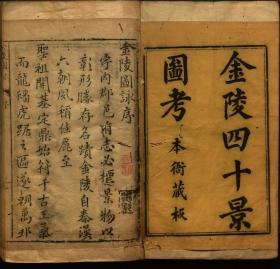 金陵四十景
圖考
本衙藏板
金陵圖詠序
宇內郡邑有志必摭景物以
彰形勝存名蹟金陵自秦漢
六朝夙稱佳麗至
聖祖開基定鼎始符千古王氣
而龍蟠虎踞之區遂朝萬邦